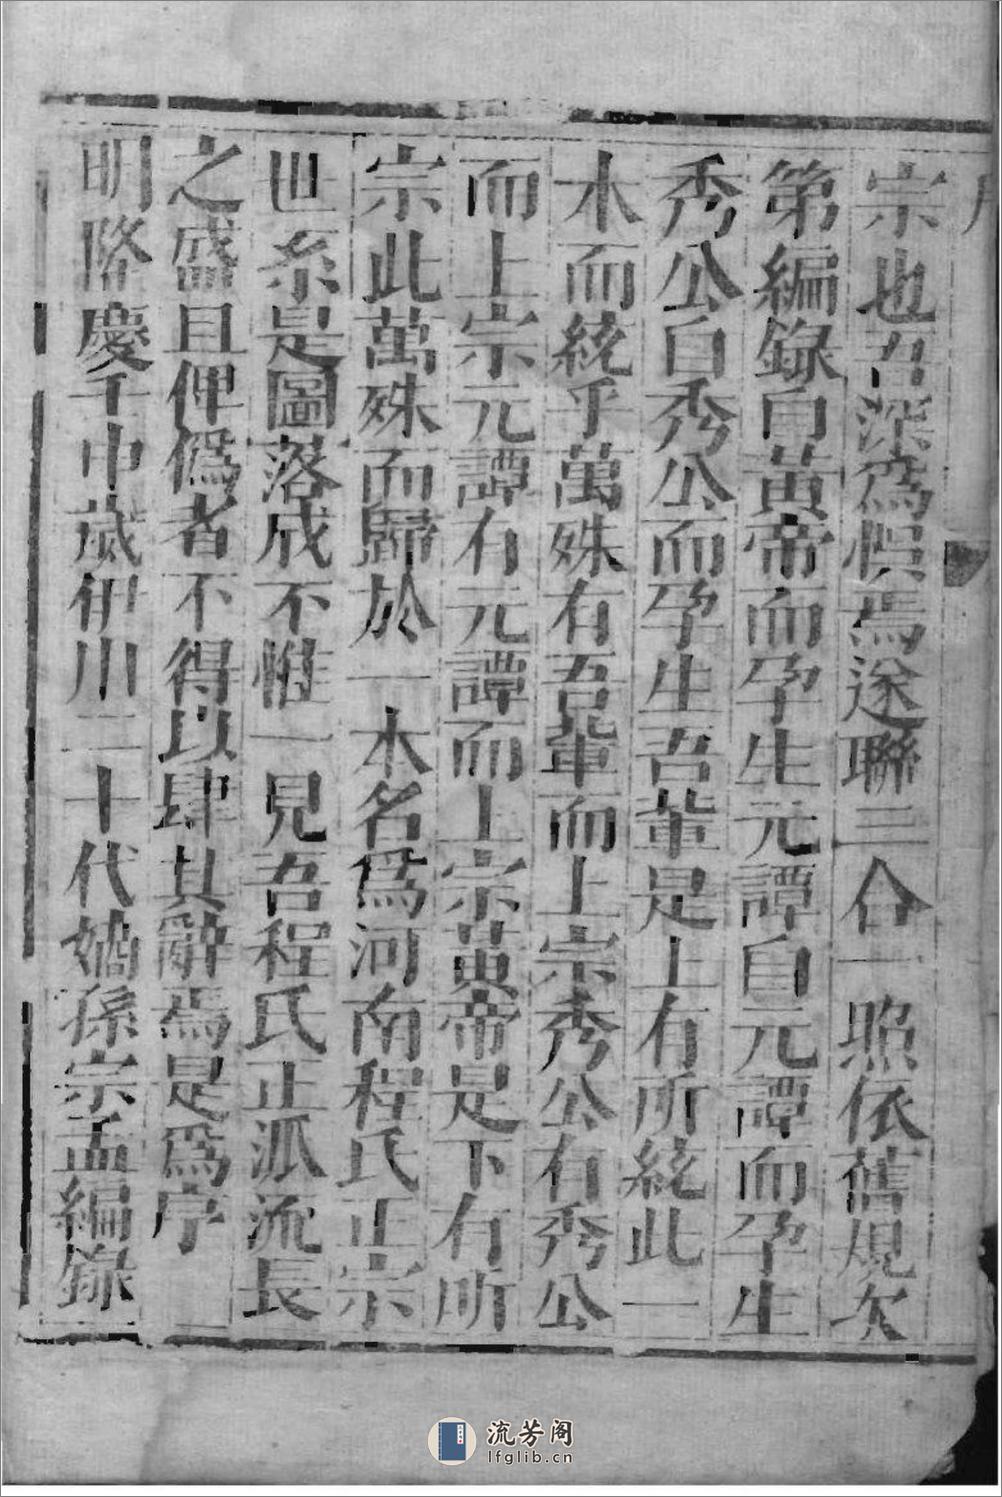 宗也召深爲懼焉遂聯三合一照依舊規次
第編錄自黃帝而孕生元譚自元譚而孕生
秀公自秀公而孕生吾輩是上有所統此一
木而統乎萬殊有吾輩而上宗秀公有秀公
而上宗元譚有元譚而上宗黃帝是下有所
宗此萬殊而歸於一本名爲河南程氏正宗
世系是圖落成不惟一見吾程氏正派流長
之盛且俾僞者不得以肆其辭焉是爲序
明隆慶壬申歲伊川二十代嫡孫宗孟編錄
流芳阁
lfglib.cn